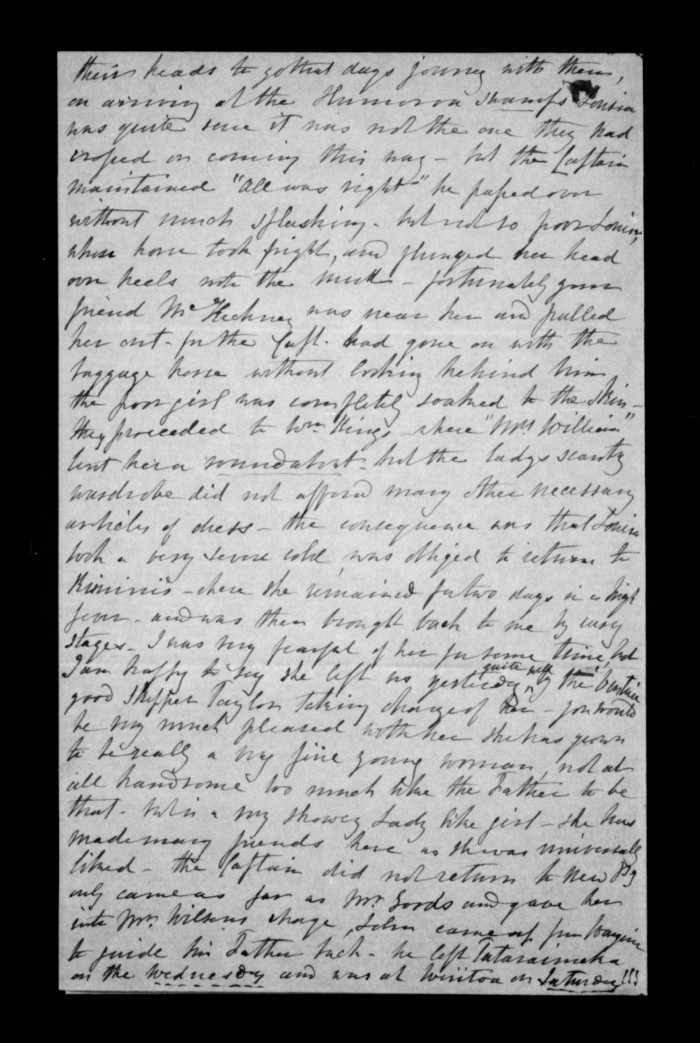 their heads to go that days journey with them,
on arriving at the Swamps Louisa
was quite sure it was not the one they had
croped on coming this way - but the Captain
maintained "all was right" he paped over
without much splashing - but not so poor Louisa,
whose horse took fright, and plunged her head
over heels into the muck - fortunately your
friend Mc Kechney was near her and pulled
her out - for the Capt. had gone on with the
baggage horse without looking behind him
the poor girl was completely soaked to the skin -
they proceeded to Wm Kings - where "Mrs William"
lent her a roundabout - but the ladys scanty
wardrobe did not afford many other necessary
articles of dress - the consequence was that Louisa
took a very severe cold, was obliged to return to
- where she remained for two days in a high
fever - and was then brought back to me by easy
stages - I was very fearful of her for some time, but
I am happy to say she left us yesterday quite well by the
good Skipper Taylor taking charge of her - you would
be very much pleased with her she has grown
to be really a very fine young woman, not at
all handsome too much like the Father to be
that - but is a very showey Lady like girl - she has
made many friends here as she was universally
liked - the Captain did not return to New Ply
only came as far as Mr. Goods and gave her
into Mrs. Wilsons charge, John came up from
to guide his Father back - he left Tataraimaka
on the Wednesday and was at on Saturday!!!